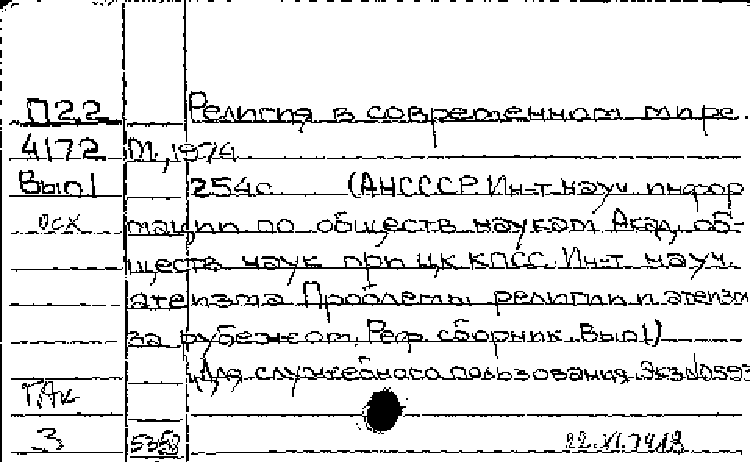 П22 Религия в современном мире.
4172 М., 1974
Вып1 254с. (АН СССР. Ин-т науч. инфор
осх мации по обществ наукам Акад. об-
ществ наук при ЦК КПСС. Ин-т науч.
атеизма Проблемы религии и атеизм
за рубежом. Реф. сборник. Вып1)
Для служебного пользования. Экз.
3 5358